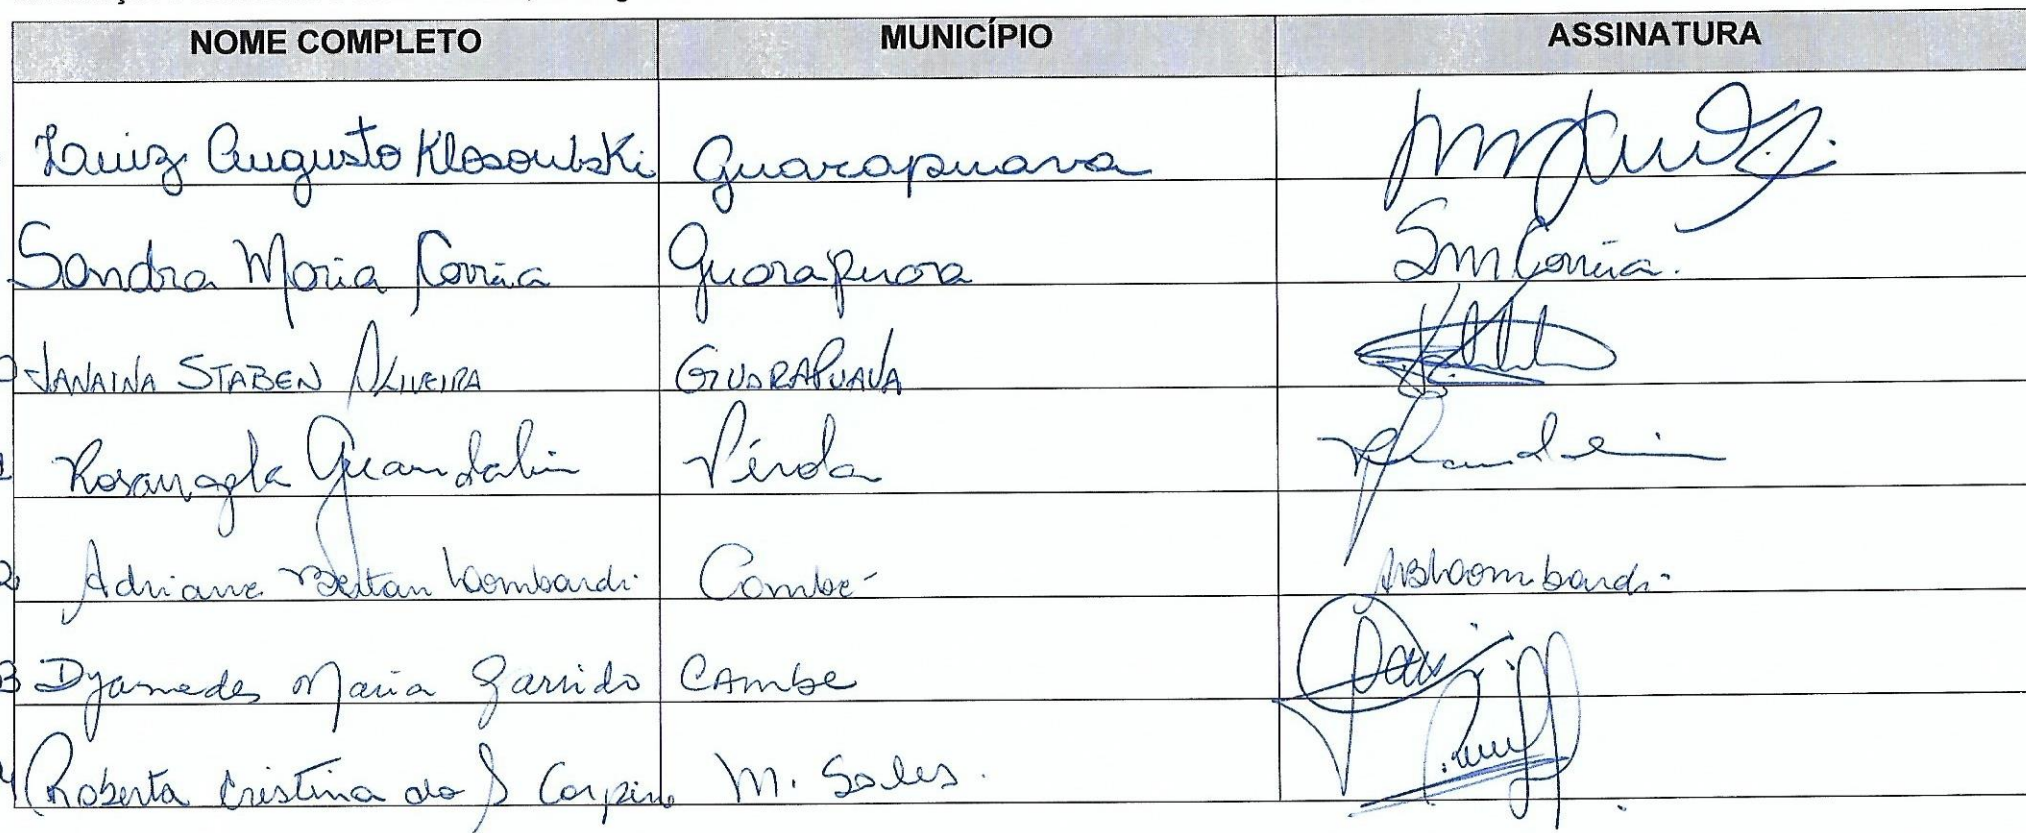 NOME COMPLETO MUNICÍPIO ASSINATURA
Luiz Augusto Klosoubski Guarapuava
Sandra Maria Corrêa Guarapuava SmCorrêa.
JANAINA STABEN OLIVEIRA GUARAPUAVA
Rosangela Guandalin Pérola
Adriane Beltan Lombardi Cambé ABLombardi
Dyamedes Maria Garrido CAmbe
Roberta Cristina do S Carpine M. Sales.